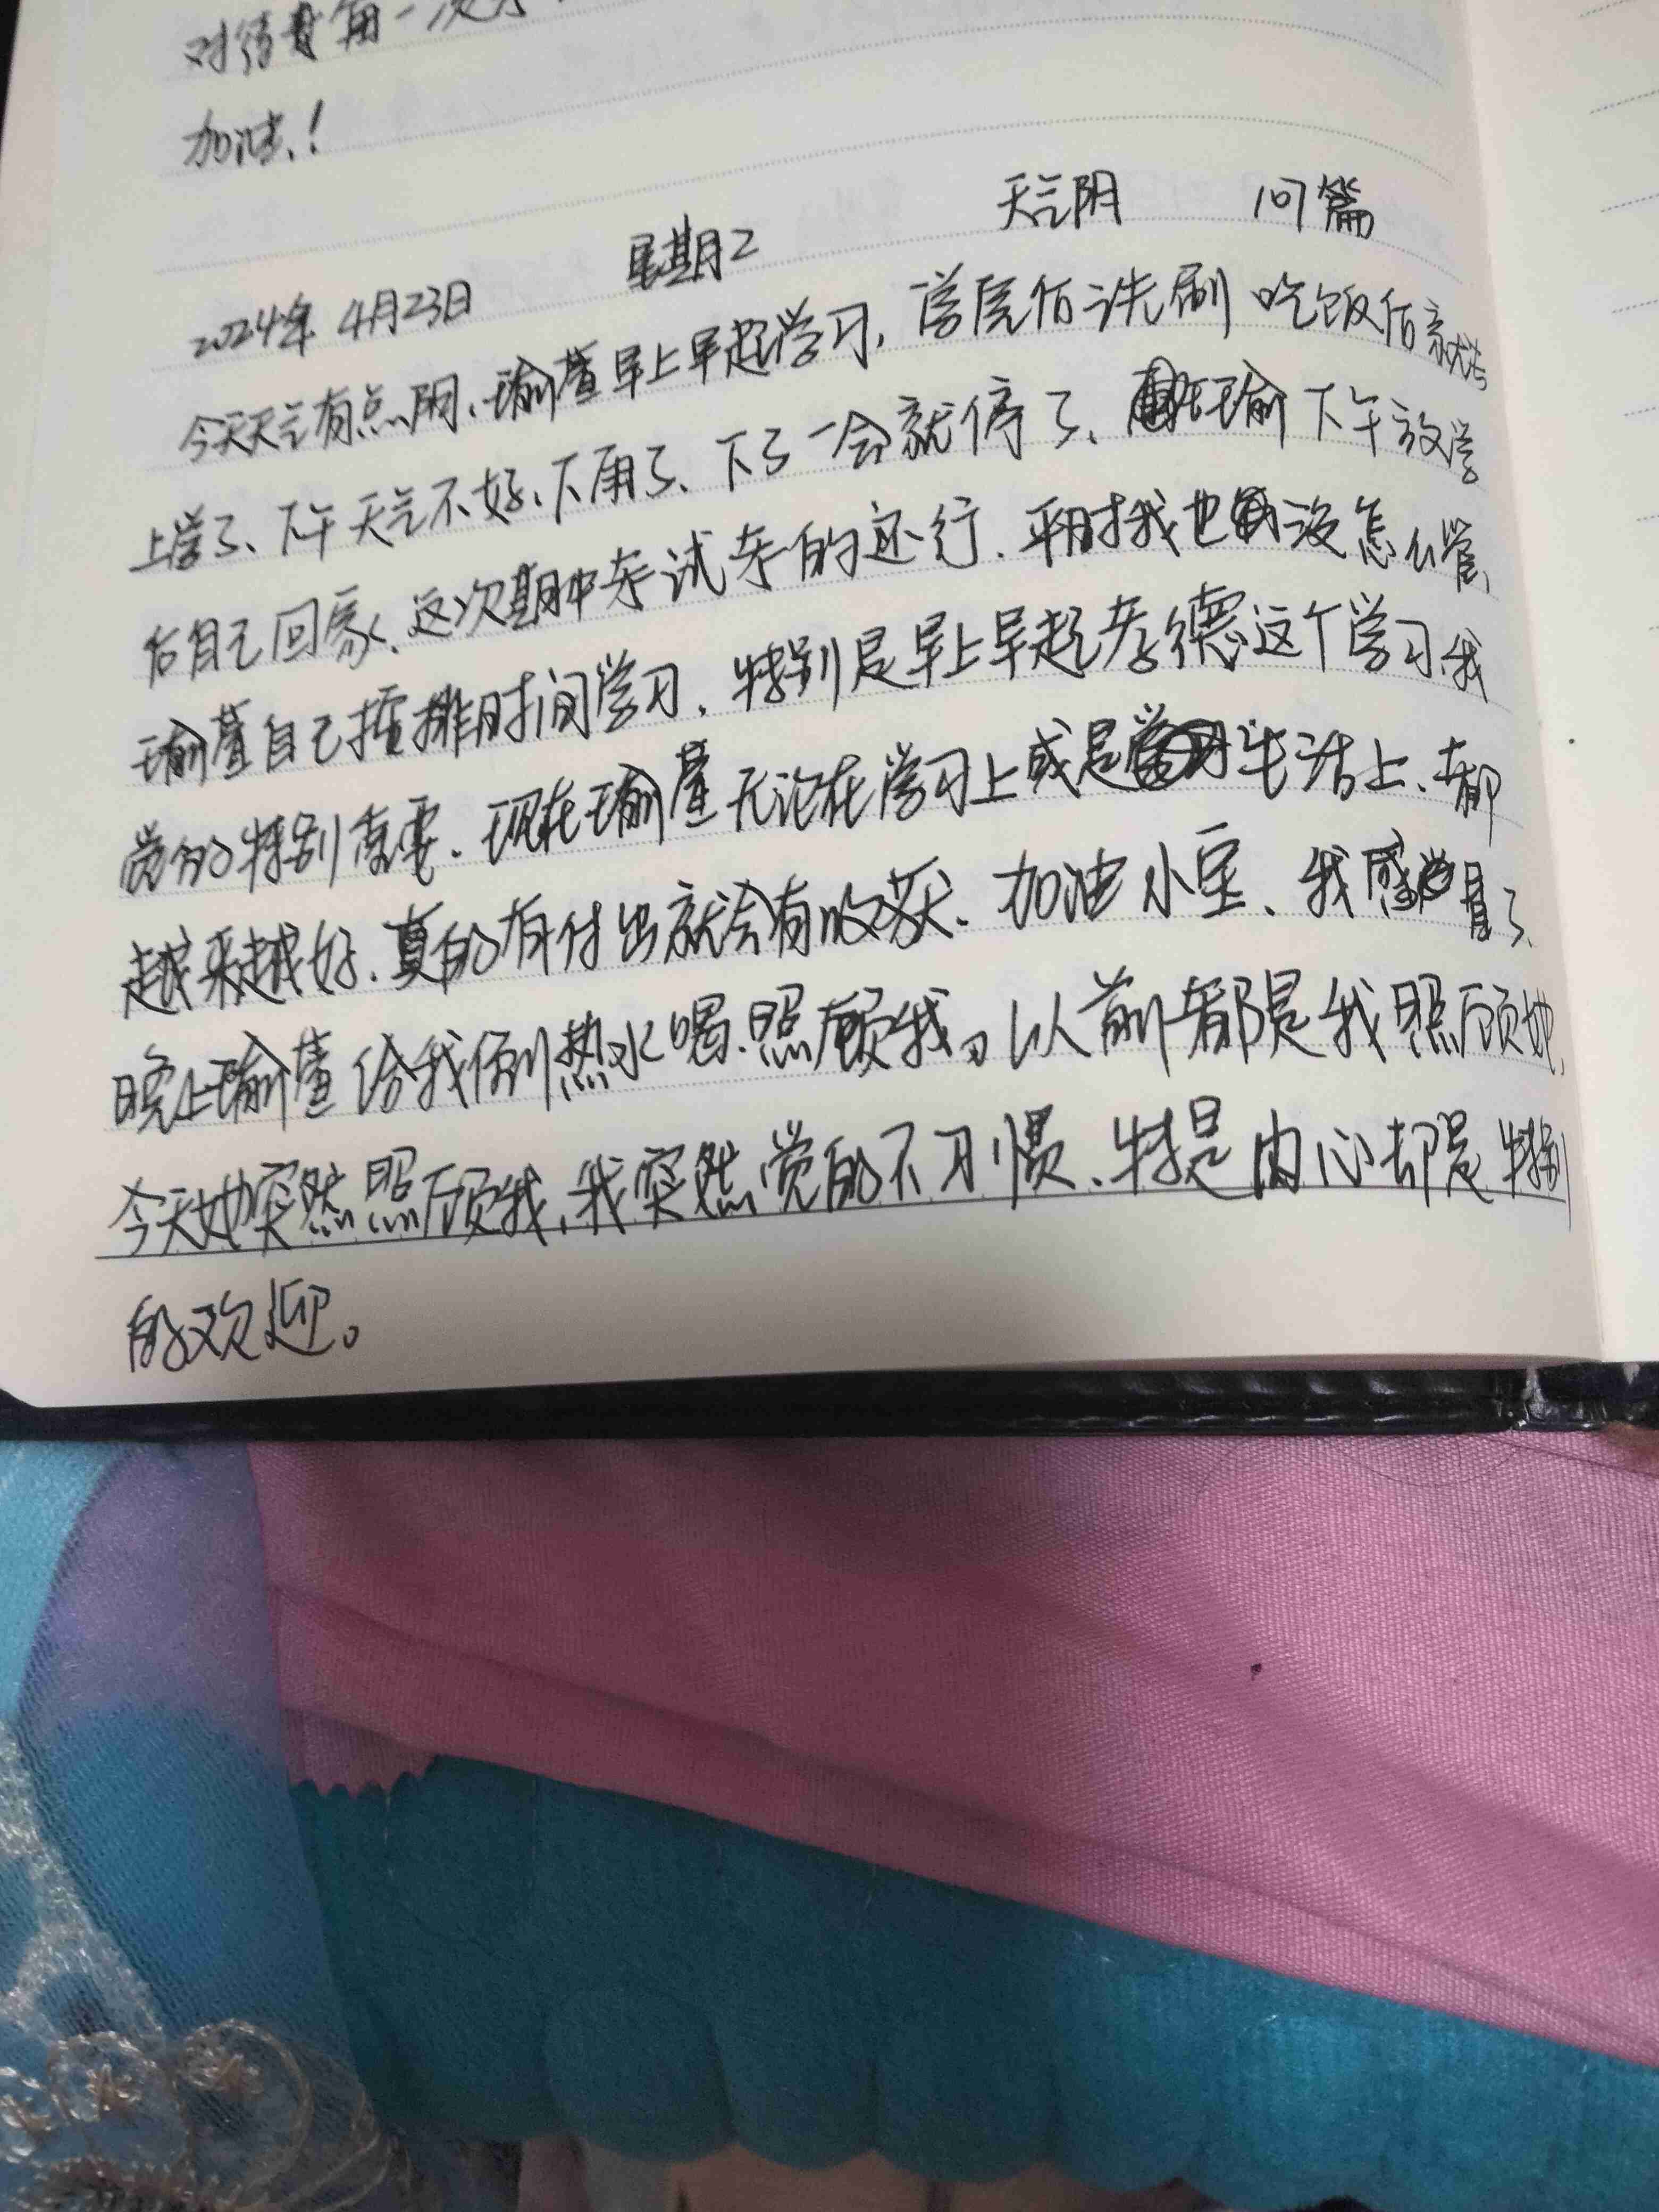 对待每一次
加油！
2024年 4月23日 星期二 天气阴 107篇
今天天气有点阴、瑜萱早上早起学习，学完后洗刷 吃饭后就去
上学了、下午天气不好、下雨了、下了一会就停了、瑜下午放学
后自己回家、这次期中考试考的还行．平时我也没怎么管、
瑜萱自己按排时间学习．特别是早上早起孝德这个学习、我
觉的特别重要．现在瑜萱无论在学习上或是生活上、都
越来越好．真的有付出就会有收获．加油小宝、我感冒了、
晚上瑜萱给我倒热水喝．照顾我。以前都是我照顾她、
今天她突然照顾我，我突然觉的不习惯、特是内心却是特别
的欢迎。